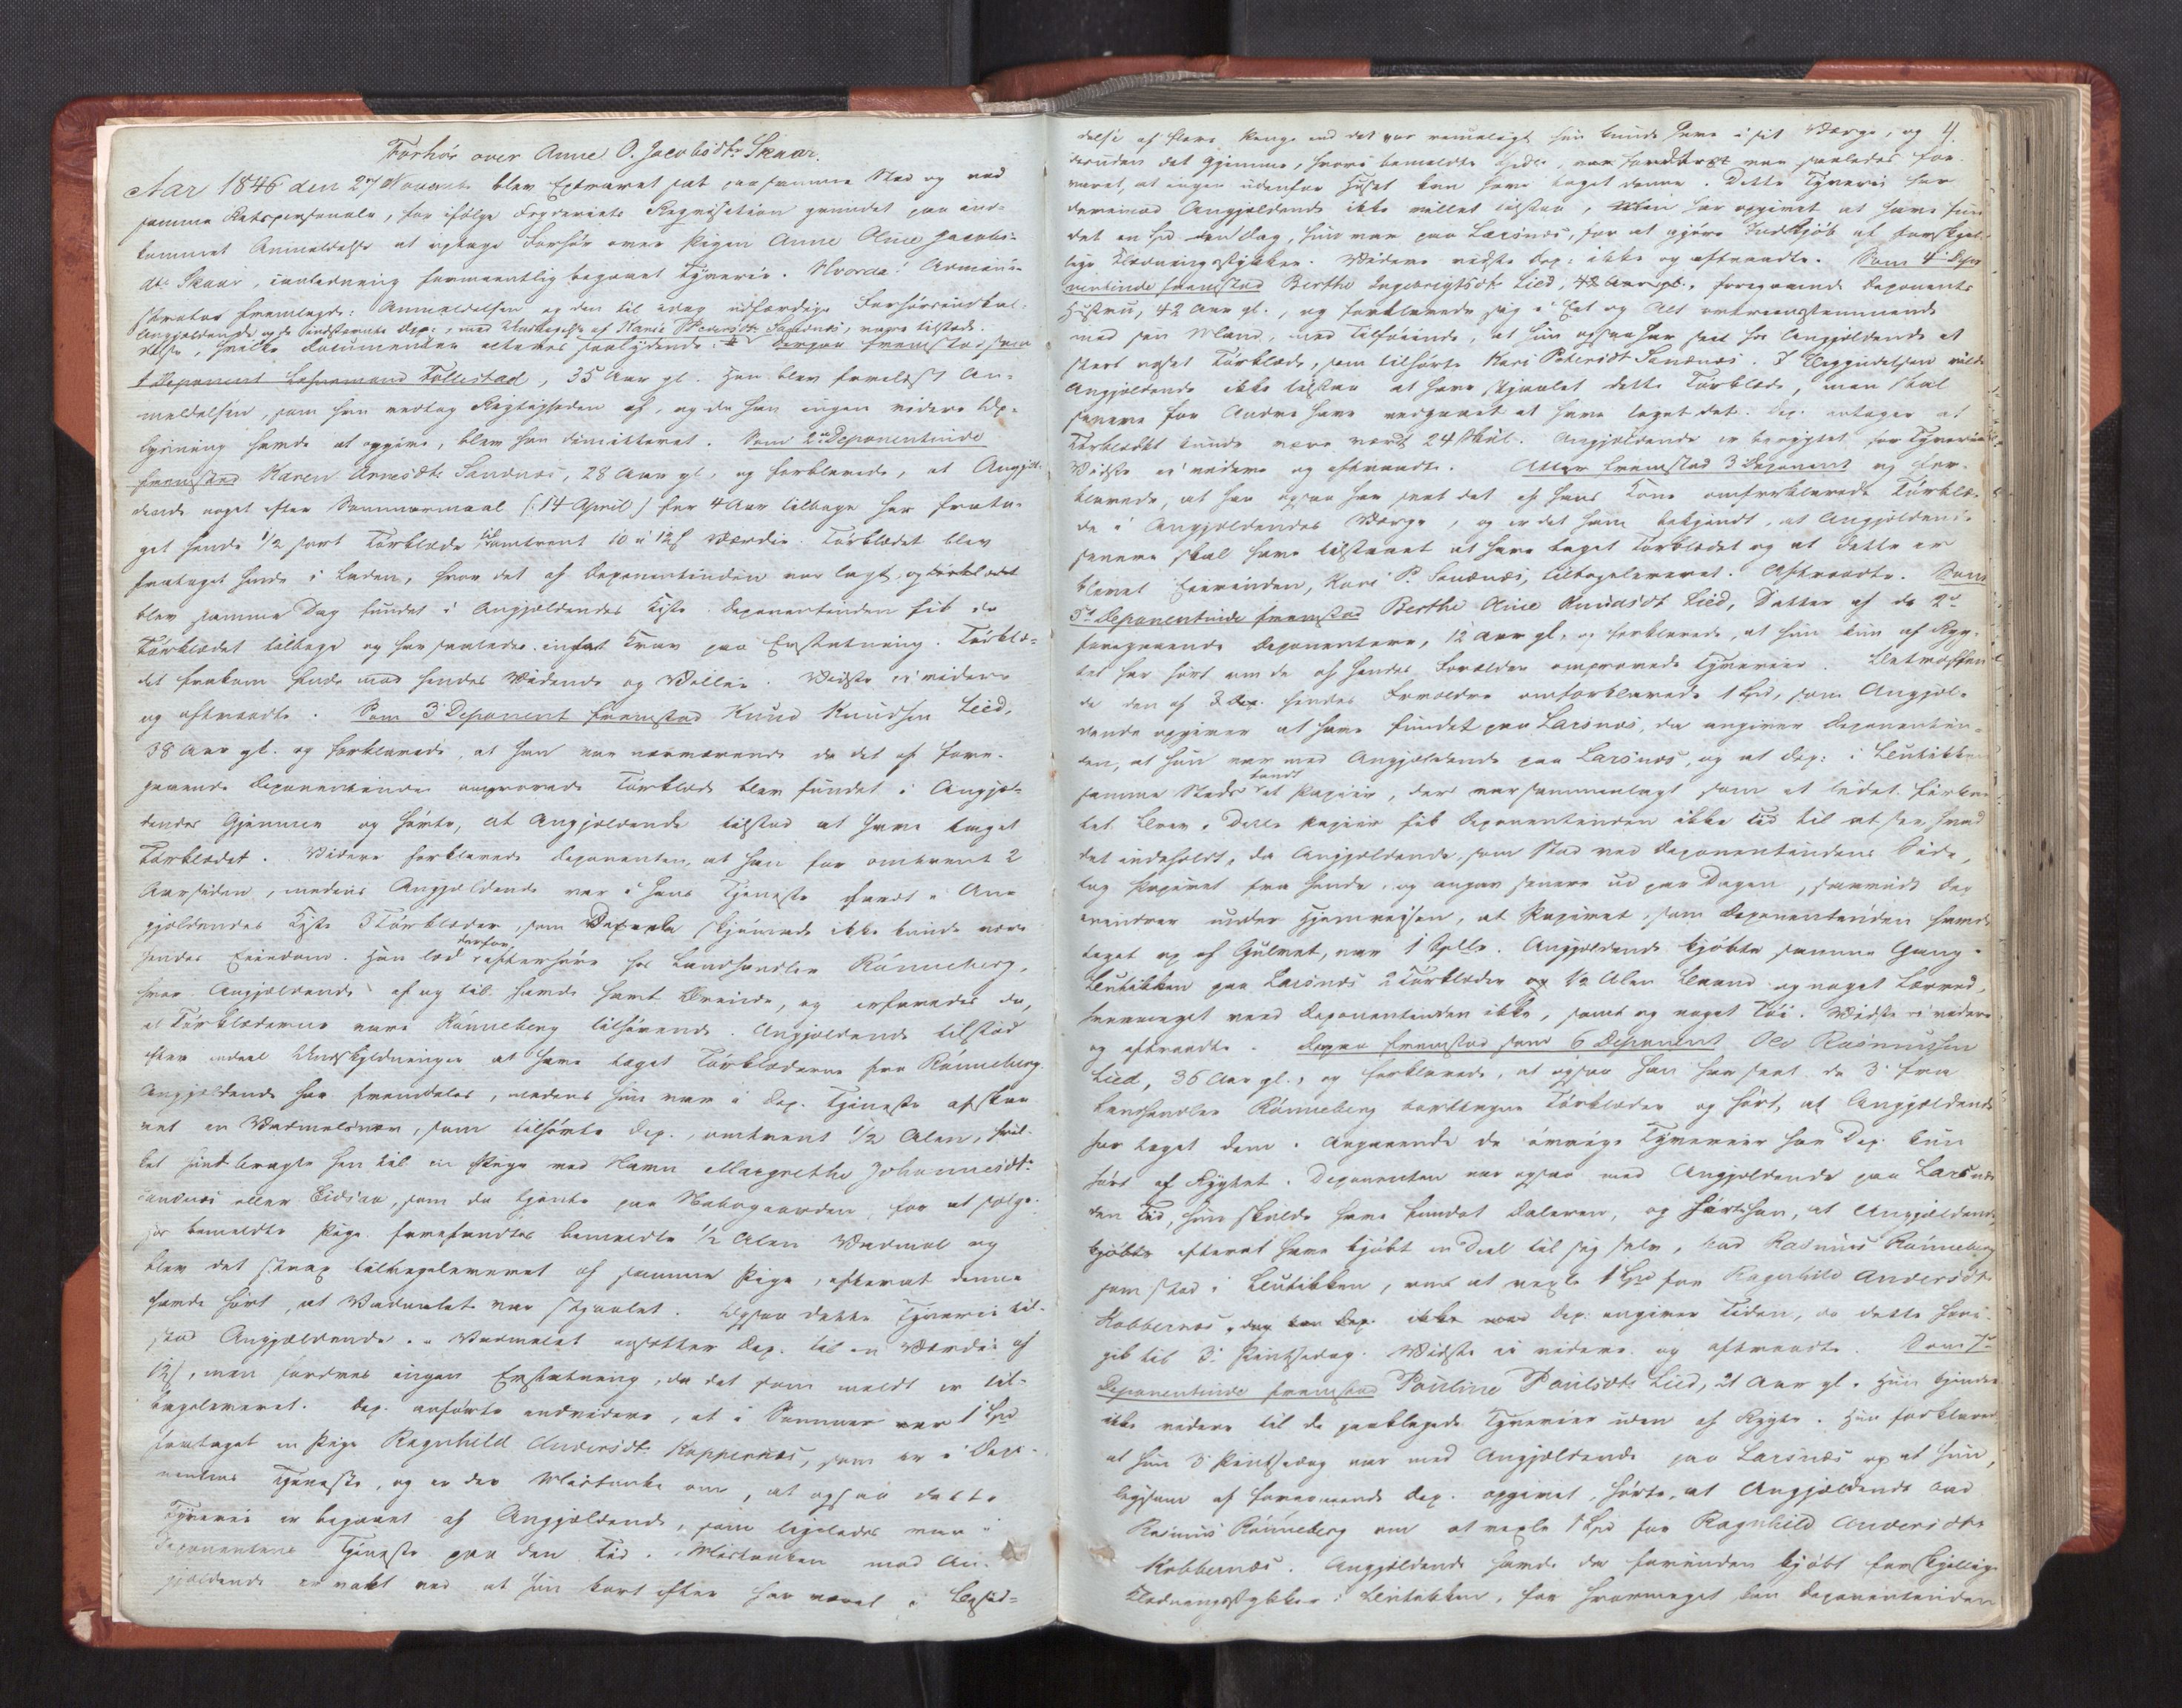 Forhør over Anne O. Jacobsdtr Skaar.
Aar 1846 den 27 Novembr blev Extraret sat paa samme Sted og ved
samme Retspersonale, for ifølge Fogderiets Reqvisition grundet paa ind-
kommet Anmeldelse at optage Forhør over Pigen Anne Oline Jacobs-
dtr Skaar, i anledning formeentlig begaaet Tyverie. Hvorda:
fremlagde: Anmeldelsen og den til idag udfærdige Forhørsindkal-
Angjældende og de indstevnte Dep:, med Undtagelse af Karie Pedersdtr Sandnæs, vare tilstede.
delse, hvilke Documenter acteres saalydende: Derpaa fremstod som
1 Deponent Lehnsmand Follestad, 35 Aar gl. Han blev forelæst An-
meldelsen, som han vedtog Rigtigheden af, og da han ingen videre Op-
lysning havde at opgive, blev han dimitteret. Som 2den Deponentinde
fremstod Karen Arnesdtr Sandnæs, 28 Aar gl. og forklarede, at Angjæl-
dende noget efter Sommermaal (: 14 April) for 4 Aar tilbage har frata-
get hende 1/2 sort Tørklæde til omtrent 10 a 12 s Værdie. Tørklædet blev
frataget hende i Laden, hvor det af Deponentinden var lagt, og
blev samme Dag fundet i Angjældendes Kiste. Deponentinden fik da
Tørklædet tilbage og har saaledes intet Krav paa Erstatning. Tørklæ-
det frakom hende mod hendes Vidende og Villie. Vidste ei videre
og aftraadte. Som 3 Deponent fremstod Knud Knudsen Lied,
38 Aar gl. og forklarede, at han var nærværende da det af fore-
gaaende Deponentinde omprovede Tørklæde blev fundet i Angjæl-
dendes Gjemme og hørte, at Angjældende tilstod at have taget
Tørklædet. Videre forklarede Deponenten, at han for omtrent 2
Aar siden, medens Angjældende var i hans Tjeneste fandt i An-
gjældendes Kiste 3 Tørklæder, som Dep. skjønnede ikke kunde være
hendes Eiendom. Han lod derfor efterhøre hos Landhandler Rønneberg,
hvor Angjældende af og til havde havt Ærinde, og erfarede da,
at Tørklæderne vare Rønneberg tilhørende. Angjældende tilstod
efter endeel Undskyldninger at have taget Tørklæderne fra Rønneberg.
Angjældende har fremdeles, medens hun var i Dep. Tjeneste afskaa-
ret en Vadmelsvæv, som tilhørte Dep., omtrent 1/2 Alen, hvil-
ket hun bragte hen til en Pige ved Navn Margrethe Johannesdtr
Sandnæs eller Eidsaa, som da tjente paa Nabogaarden, for at sælge.
Hos bemeldte Pige forefandtes bemeldte 1/2 Alen Vadmel og
blev det strax tilbageleveret af samme Pige, efterat denne
havde hørt, at Vadmelet var stjaalet. Ogsaa dette Tyverie til-
stod Angjældende. Vadmelet ansætter Dep. til en Værdie af
12 s, men fordres ingen Erstatning, da det som meldt er til-
bageleveret. Dep. anførte endvidere, at i Sommer var 1 Spd
frataget en Pige Ragnhild Andersdtr Koppernæs, som er i Depo-
nentens Tjeneste, og er der Mistanke om, at ogsaa dette
Tyverie er begaaet af Angjældende, som ligeledes var i
Deponentens Tjeneste paa den Tid. Mistanken mod An-
gjældende er vakt ved at hun kort efter har været i Besid-
4.
delse af flere Penge end det var rimeligt hun kunde have i sit Værge, og
desuden det Gjemme, hvori bemeldte Sedler var saaledes for-
varet, at ingen udenfor Huset kan have taget denne. Dette Tyverie har
derimod Angjældende ikke villet tilstaa, men har opgivet at have fun-
det en Spd den Dag, hun var paa Larsnæs, for at gjøre Indkjøb af forskjel-
lige Klædningsstykker. Videre vidste Dep: ikke og aftraadte. Som 4 Depo-
nentinde fremstod Berthe Ingebrigtsdtr Lied, 42 Aar gl., foregaaende Deponents
Hustru, 42 Aar gl., og forklarede sig i Eet og Alt overeensstemmende
med sin Mand, med Tilføiende, at hun ogsaa har seet hos Angjældende et
stort Tørklæde, som tilhørte Kari Petersdtr Sandnæs. I Begyndelsen vilde
Angjældende ikke tilstaa at have stjaalet dette Tørklæde, men skal
senere for Andre have vedgaaet at have taget det. Dep. antager at
Tørklædet kunde være værdt 24 Skil. Angjældende er berygtet for Tyverier.
Vidste ei videre og aftraadte. Atter fremstod 3 Deponent og for-
klarede, at han ogsaa har seet det af hans Kone omforklarede Tørklæ-
de i Angjældendes Værge, og er det ham bekjendt, at Angjældende
senere skal have tilstaaet at have taget Tørklædet og at dette er
blevet Eierinden, Kari P. Sandnæs, tilbageleveret. Aftraadte. Som
5te Deponentinde fremstod Berthe Oline Knudsdt Lied, Datter af de 2de
foregaaende Deponentere, 12 Aar gl. og forklarede, at hun kun af Ryg-
tet har hørt om de af hendes Forældre omprovede Tyverier. Betræffen-
de den af hendes Forældre omforklarede 1 Spd, som Angjæl-
dende opgiver at have fundet paa Larsnæs, da angiver Deponentin-
den, at hun var med Angjældende paa Larsnæs, og at Dep: i Butikken
samme Steds fandt et Papiir, der var sammenlagt som et lidet
Brev. Dette Papiir fik Deponentinden ikke Tid til at see, hvad
det indeholdt, da Angjældende, som stod ved Deponentindens Side,
tog Papiret fra hende, og angav senere ud paa Dagen, saavidt Dep
erindrer under Hjemreisen, at Papiret, som Deponentinden havde
taget op af Gulvet, var 1 Spdlr. Angjældende kjøbte samme Gang i
Butikken paa Larsnæs 2 Tørklæder og 1/2 Alen Baand og noget Lærred,
hvormeget veed Deponentinden ikke, samt og noget Tøi. Vidste ei videre
og aftraadte. Derpaa fremstod som 6 Deponent Ole Rasmussen
Lied, 36 Aar gl., og forklarede, at ogsaa han har seet de 3 fra
Landhandler Rønneberg borttagne Tørklæder og hørt, at Angjældende
har taget dem. Angaaende de øvrige Tyverier har Dep. kun
hørt af Rygtet. Deponenten var ogsaa med Angjældende paa Larsnæs
den Tid, hun skulde have fundet Daleren, og hørte han, at Angjældende,
kjøbte efterat have kjøbt en Deel til sig selv, bad Rasmus Rønneberg
som stod i Butikken, om at vexle 1 Spd for Ragnhild Andersdtr
Kobbernæs, dog kan Dep. ikke Dep: angiver Tiden, da dette fore-
gik til 3 Pintsedag. Vidste ei videre og aftraadte. Som 7de
Deponentinde fremstod Pouline Poulsdtr Lied, 21 Aar gl. Hun kjender
ikke videre til de paaklagede Tyverier uden af Rygte. Hun forklarede
at hun 3 Pintsedag var med Angjældende paa Larsnæs og at hun,
ligesom af foregaaende Dep. opgivet, hørte, at Angjældende bad
Rasmus Rønneberg om at vexle 1 Spd for Ragnhild Andersdtr
Kobbernæs. Angjældende havde da forinden kjøbt forskjellige
Klædningsstykker i Butikken, for hvormeget kan Deponentinden